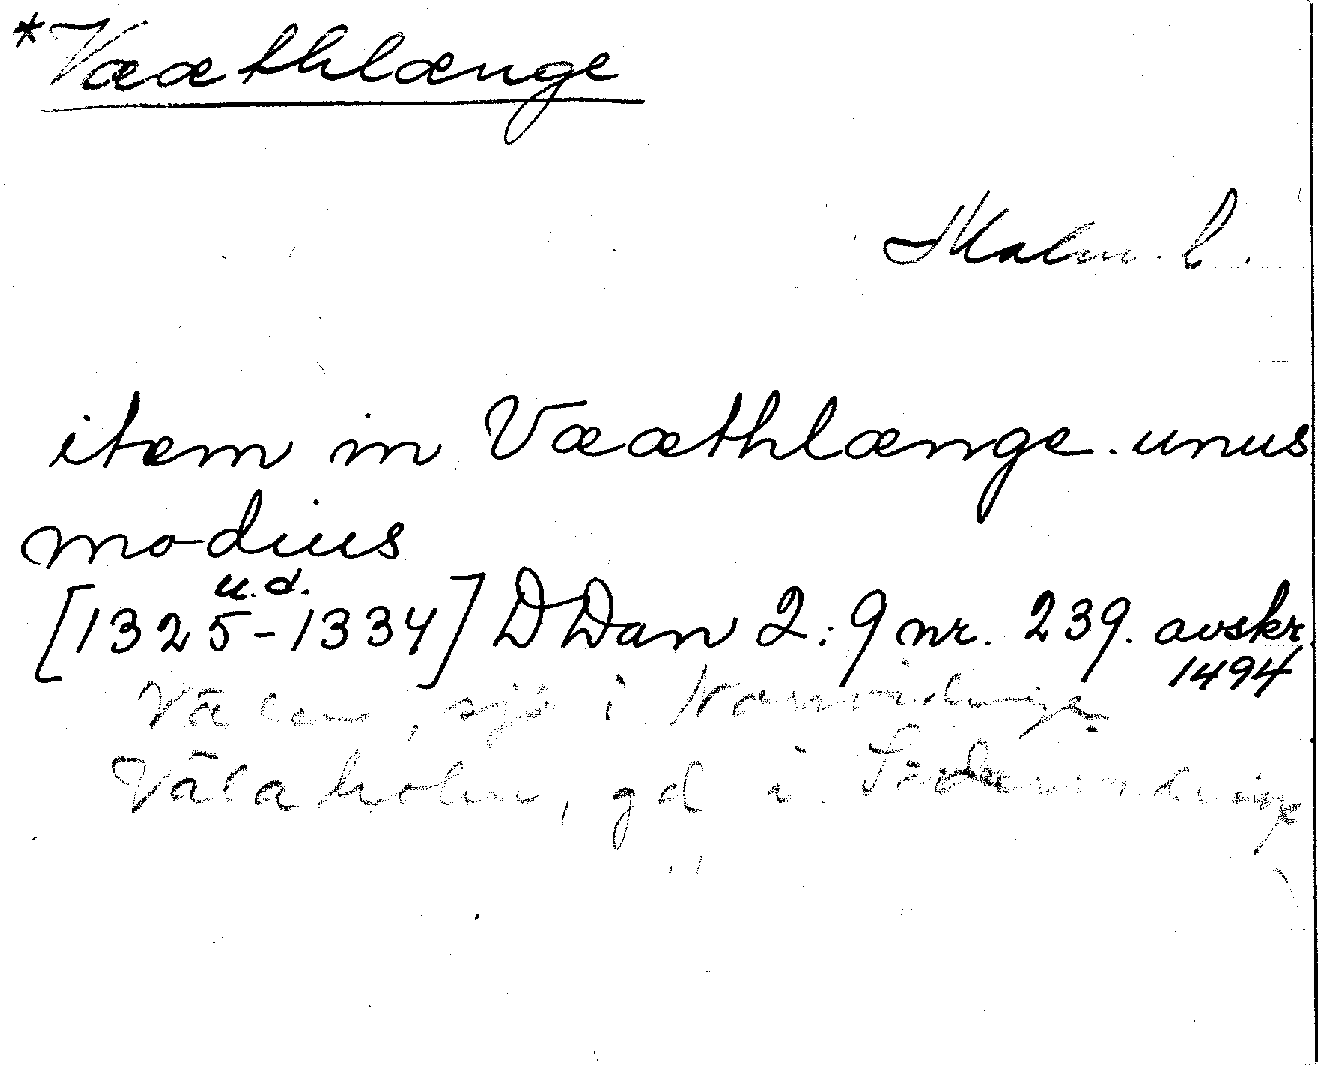 *Vææthlænge
Malm. l.
item in Vææthlænge. unus
modius
u.d.
[1325-1334] DDan 2:9 nr. 239. avskr.
1494
Välen, sjö i
Välaholm, gd i